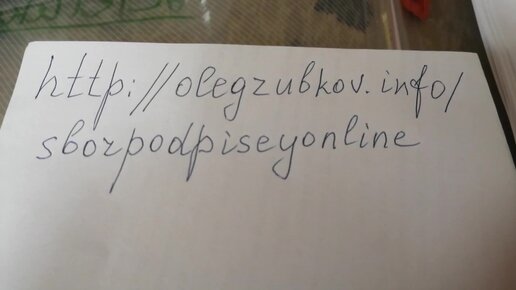 http://olegzubkov.info/
sborpodpiseyonline